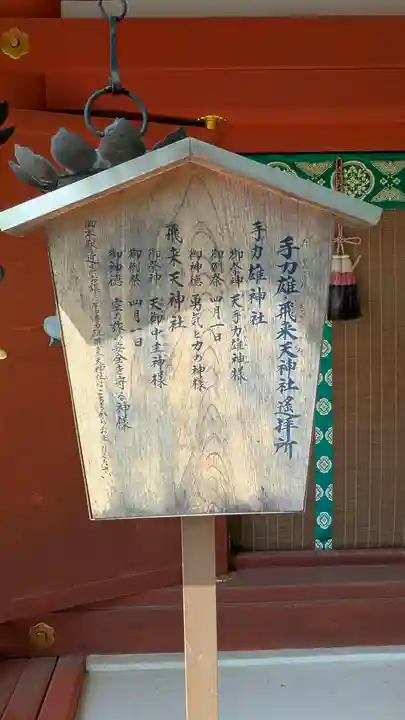 手力雄・飛来天神社遙拝所
手力雄神社
御祭神 天手力雄神様
御例祭 四月一日
御神徳 勇気と力の神様
飛来天神社
御祭神 天御中主神様
御例祭 四月一日
御神徳 空の旅の安全を守る神様